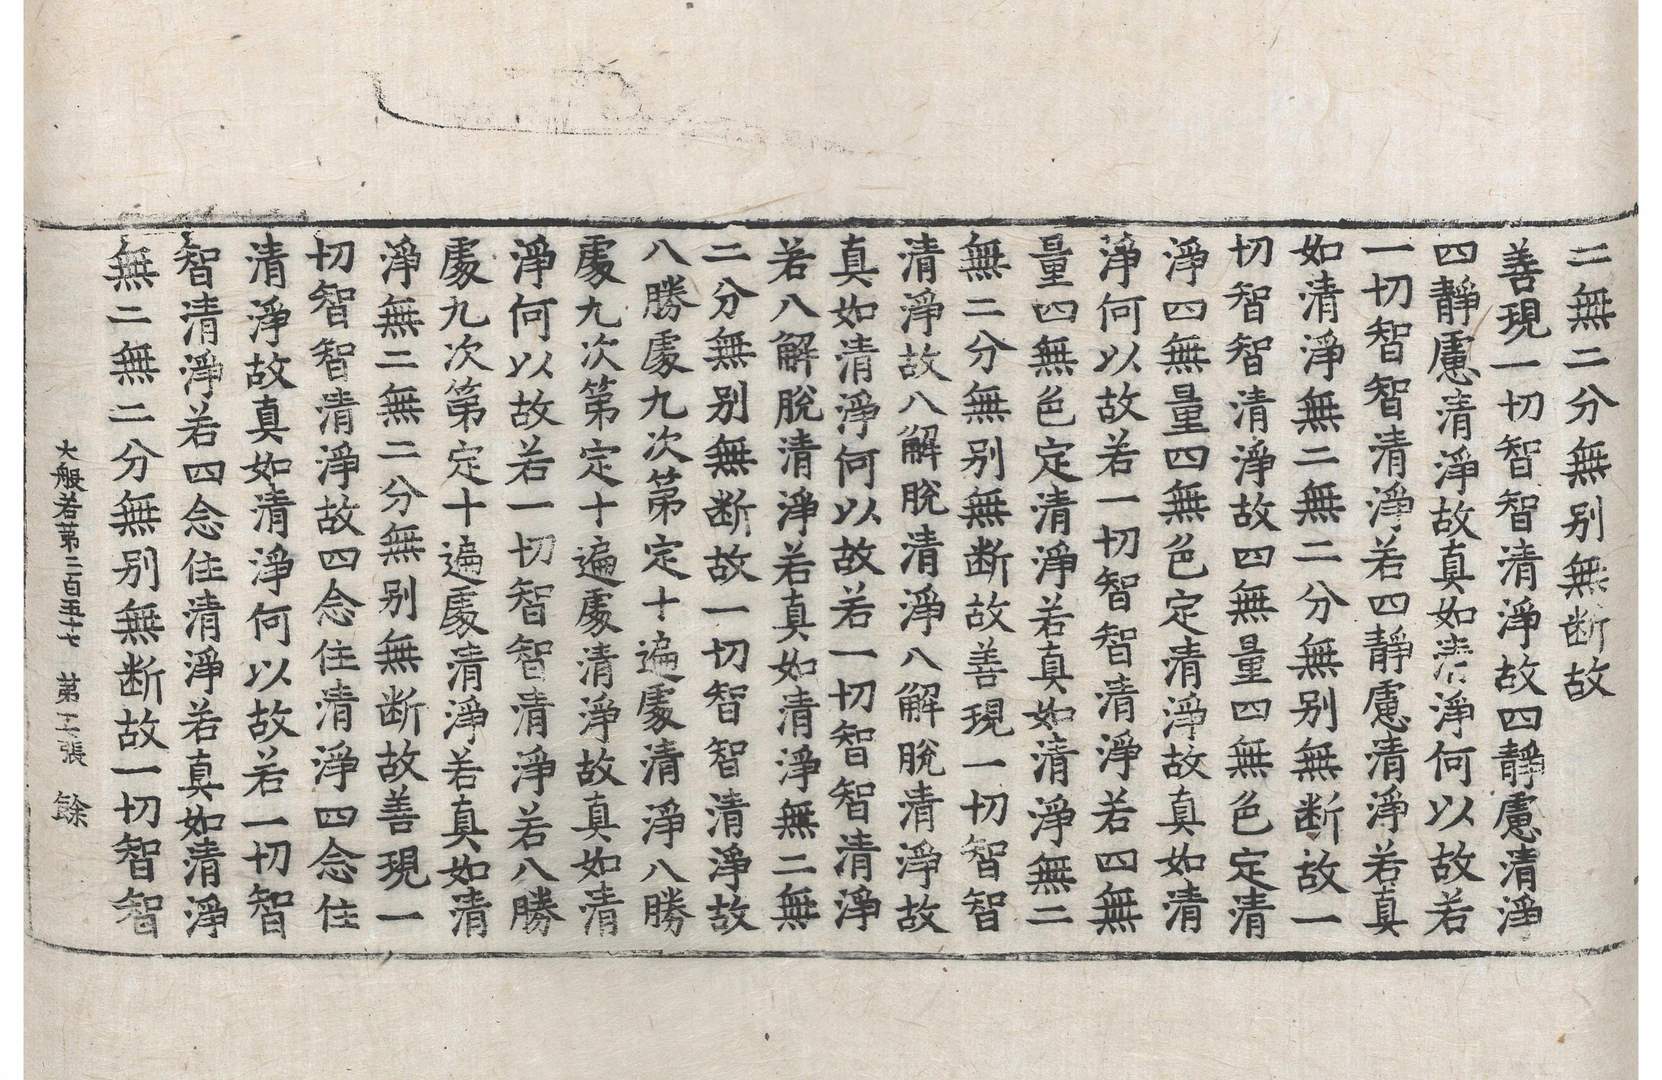 二無二分無別無断故
善現一切智智清淨故四靜慮清淨
四靜慮清淨故真如清淨何以故若
一切智智清淨若四靜慮清淨若真
如清淨無二無二分無別無断故一
切智智清淨故四無量四無色定清
淨四無量四無色定清淨故真如清
淨何以故若一切智智清淨若四無
量四無色定清淨若真如清淨無二
無二分無別無断故善現一切智智
清淨故八解脫清淨八解脫清淨故
真如清淨何以故若一切智智清淨
若八解脫清淨若真如清淨無二無
二分無別無断故一切智智清淨故
八勝處九次第定十遍處清淨八勝
處九次第定十遍處清淨故真如清
淨何以故若一切智智清淨若八勝
處九次第定十遍處清淨若真如清
淨無二無二分無別無断故善現一
切智智清淨故四念住清淨四念住
清淨故真如清淨何以故若一切智
智清淨若四念住清淨若真如清淨
無二無二分無別無断故一切智智
大般若第二百五十七 第二張 餘